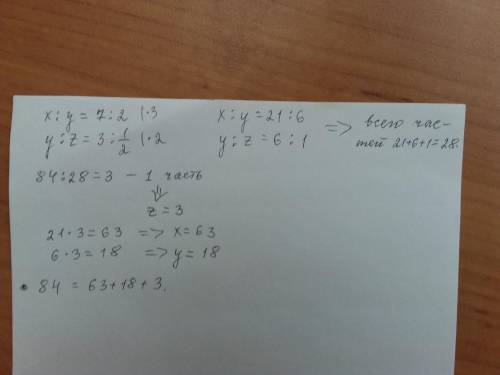 x:y = 7:2 |·3
y:z = 3:1/2 |·2
x:y = 21:6
y:z = 6:1
=> всего час-
тей 21+6+1=28.
84:28=3 - 1 часть
⇓
z = 3
21·3=63 => x=63
6·3=18 => y=18
84 = 63+18+3.